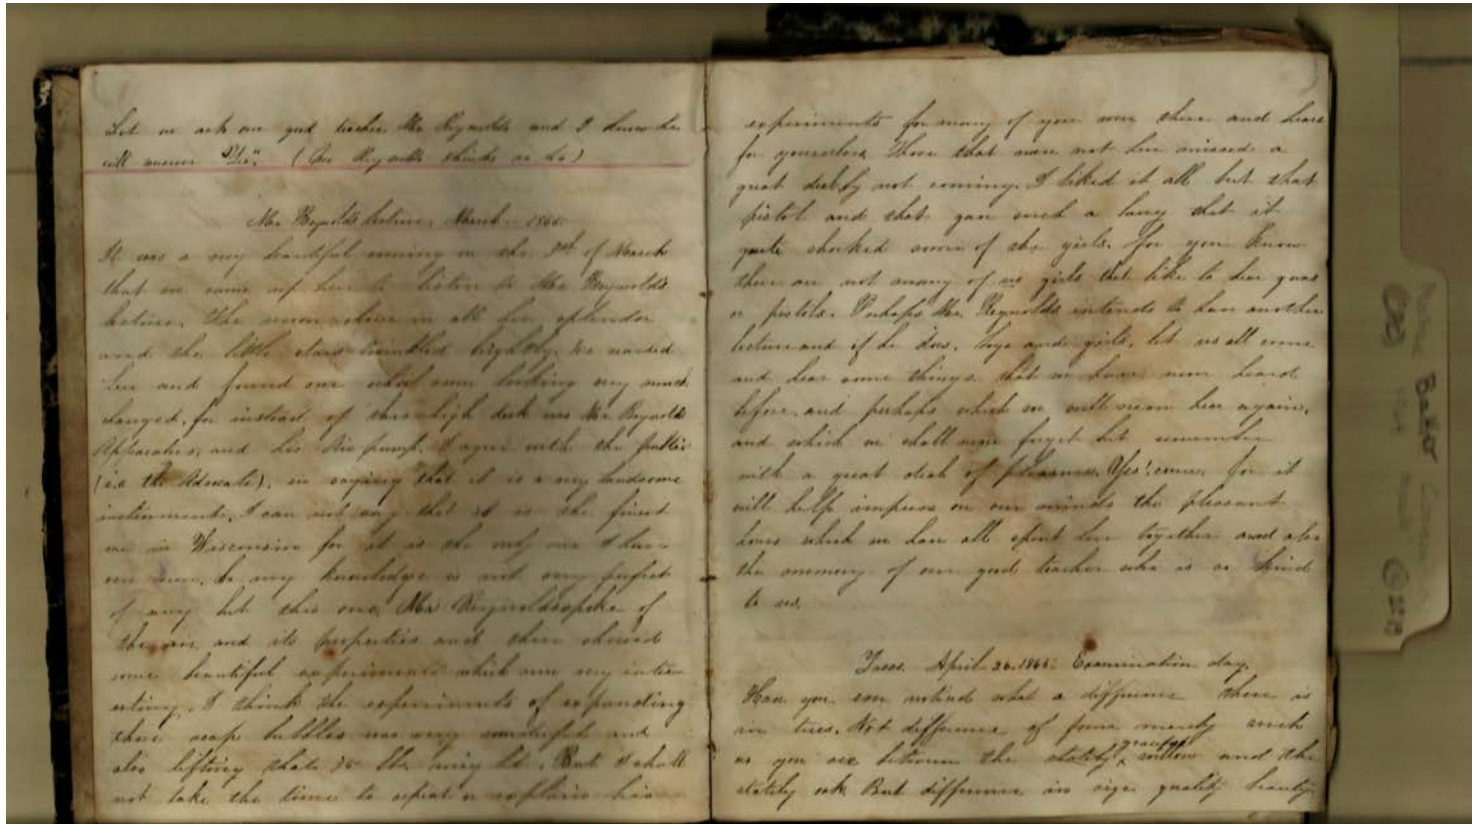 Let us ask our good teacher Mr Reynolds and I know he
will answer "Yes". (Mr Reynolds thinks so to)
Mr Reynolds lecture. March 1865
It was a very beautiful evening in the of March
that we came up here to listen to Mr Reynolds
lecture. The moon shone in all her splendor
and the little stars twinkled brightly. We
here and found our school room looking very much
changed, for instead of the high desk was Mr Reynolds
Apparatus, and his Air pump. I agree with the public
(i.e. the Advocate), in saying that it is a very handsome
instrument. I can not say that it is the finest
one in Wisconsin for it is the only one I have
ever seen. So my knowledge is not very perfect
of any but this one. Mr Reynolds spoke of
the air, and its properties and then showed
some beautiful experiments which were very inter
esting. I think the experiments of expanding
those soap bubbles was very wonderful and
also lifting that 75 lb. But I shall
not take the time to repeat or explain his
experiments for many of you were there and heard
for yourselves. Those that were not here missed a
great deal by not coming. I liked it all but that
pistol and that gave such a bang that it
quite shocked some of the girls. for you know
there are not many of us girls that like to hear guns
or pistols. Perhaps Mr. Reynolds intends to have another
lecture and if he does, boys and girls, let us all come
and hear some things that we have never heard
before, and perhaps which we will never hear again,
and which we shall never forget but remember
with a great deal of pleasure. Yes! come, for it
will help impress on our minds the pleasant
hours which we have all spent here together and also
the memory of our good teacher who is so kind
to us.
Trees. April 26. 1865. Examination day.
Have you ever noticed what a difference there is
in trees. Not difference of form merely such
as you see between the stately graceful willow and the
stately oak. But difference in size, quality, beauty